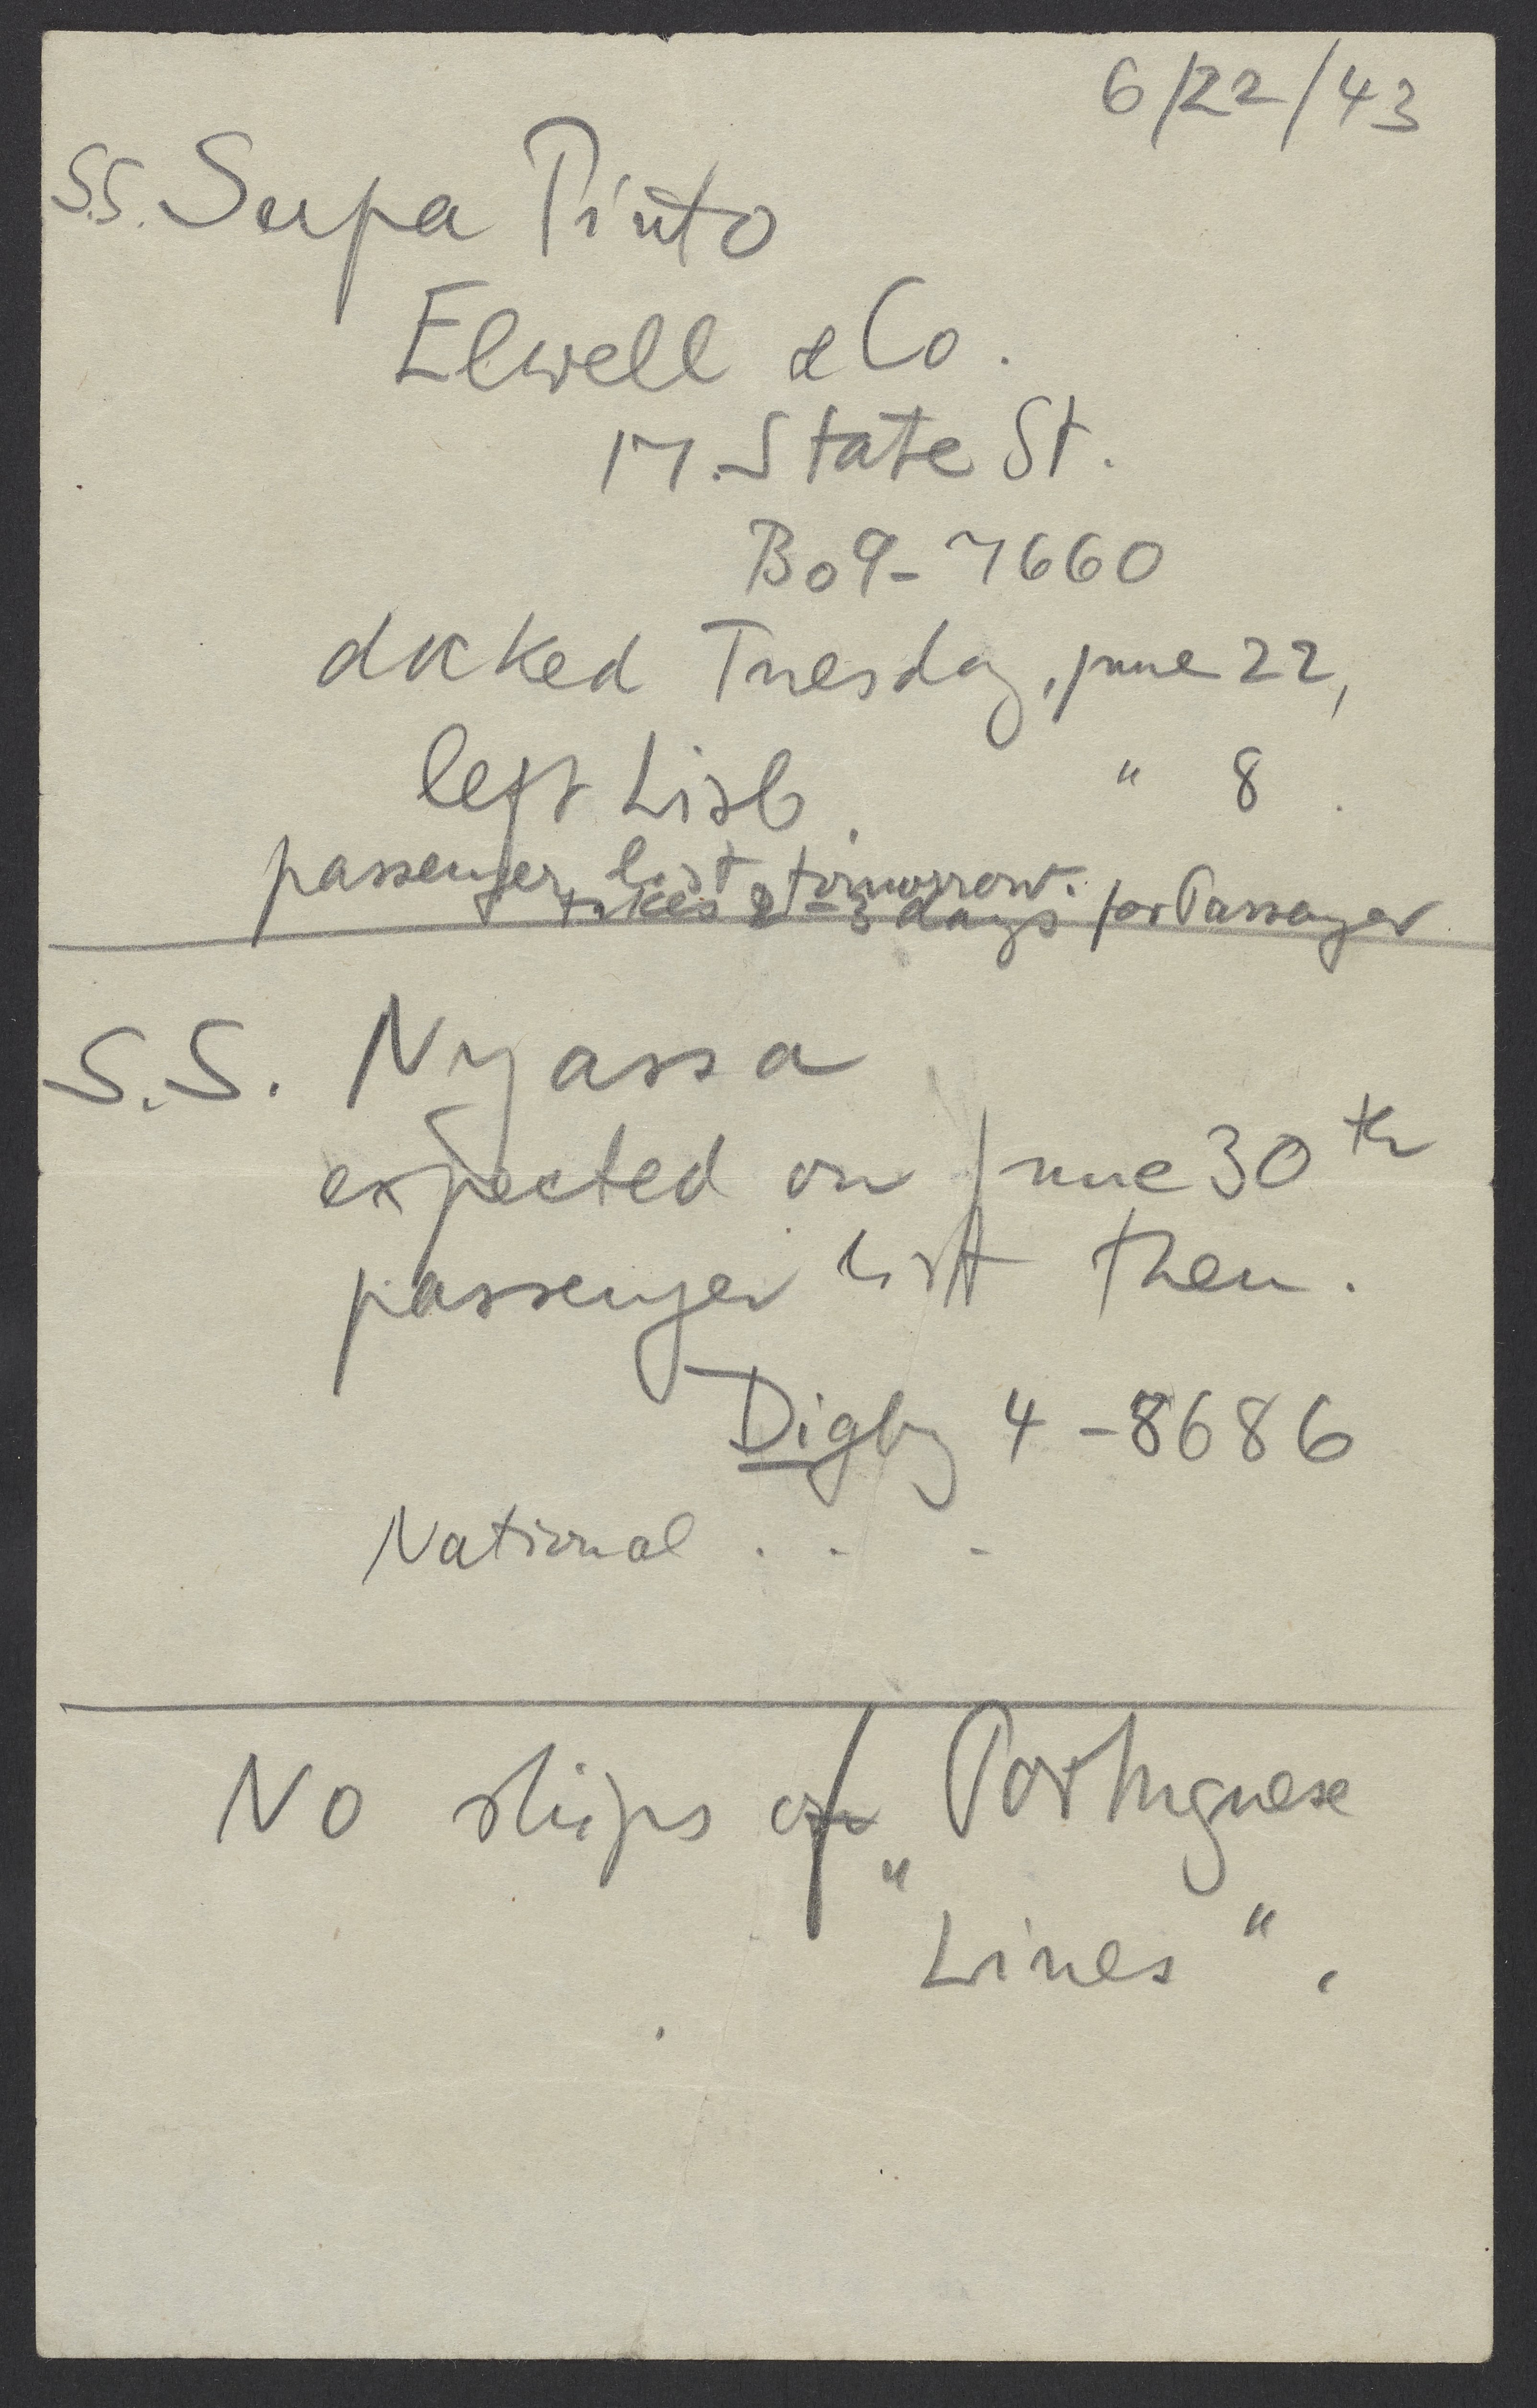 6/22/43
S.S. Supa Pinto
Elwell & Co.
17. State St.
Bo 9-7660
docked Tuesday, june 22,
left Lisb. " 8.
passenger list tomorrow.
takes 2-3 days for Passenger
S.S. Nyassa
expected on june 30th
passenger list then.
Digby 4-8686
National . . -
No ships of „Portuguese
Lines".